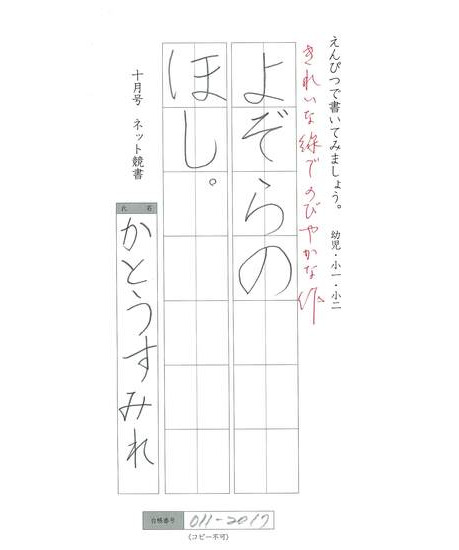 えんぴつで書いてみましょう。 幼児・小一・小二
きれいな線でのびやかな作
よぞらの
ほし。
十月号 ネット競書
氏名
かとうすみれ
台帳番号 011-2017
(コピー不可)